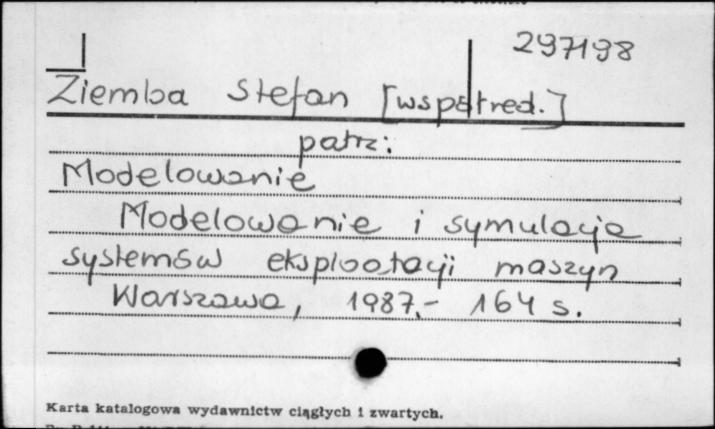 297198
Ziemba Stefan [współred.]
patrz:
Modelowanie
Modelowanie i symulacja
systemów eksploatacji maszyn
Warszawa, 1987.- 164 s.
Karta katalogowa wydawnictw ciągłych i zwartych.